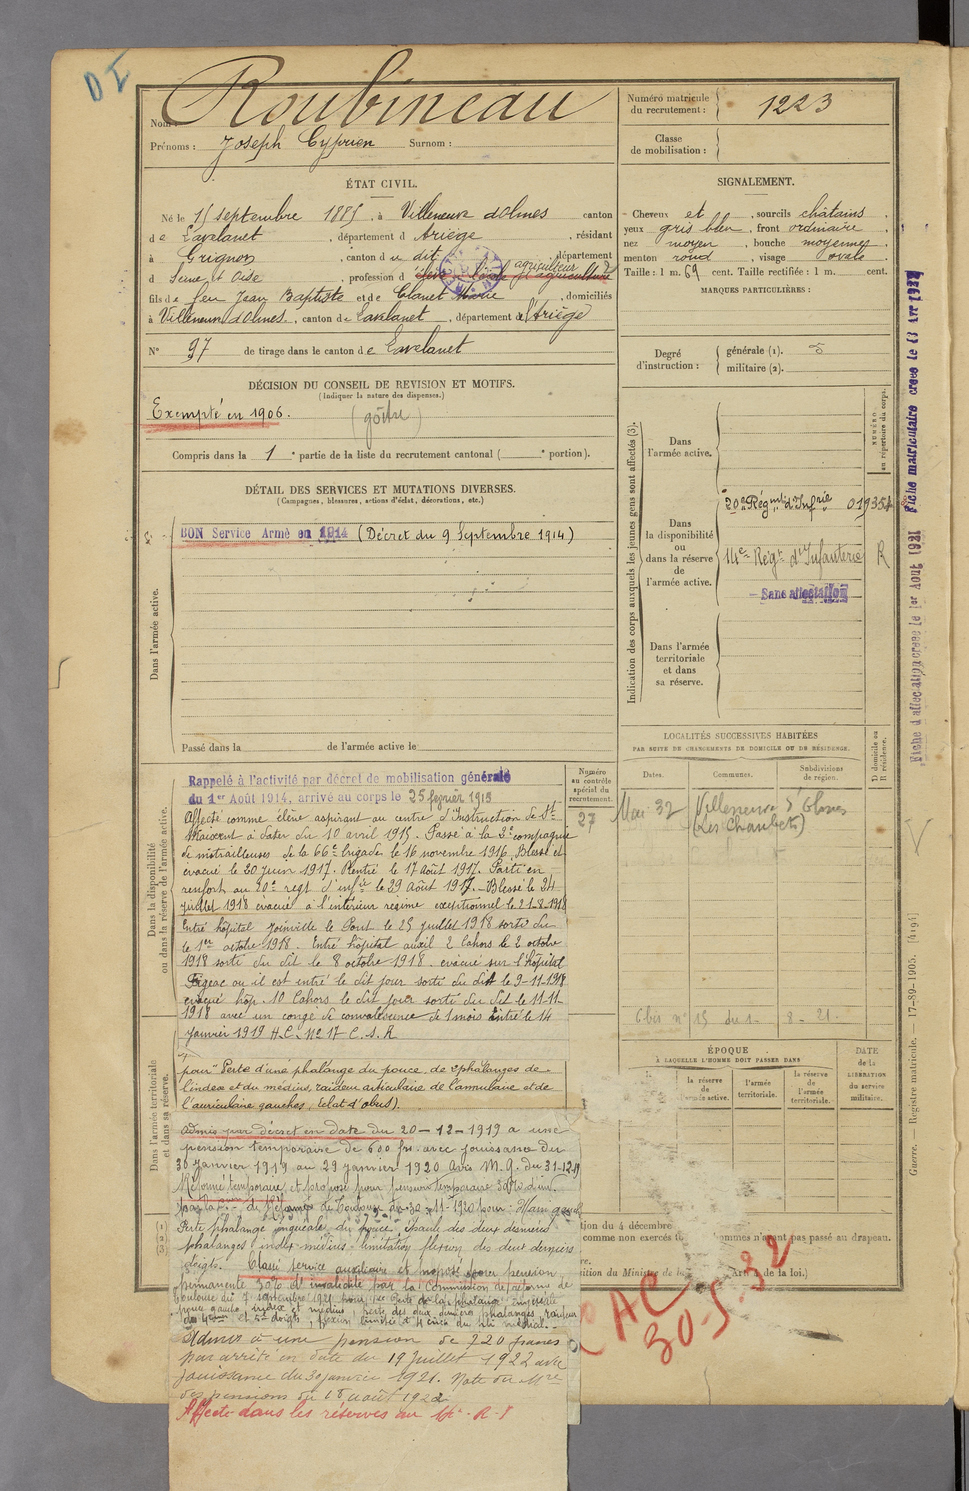 D I
Nom : Roubineau
Prénoms : Joseph Cyprien Surnom :
Numéro matricule du recrutement : 1223
Classe de mobilisation :
ÉTAT CIVIL.
Né le 15 septembre 1885, à Villeneuve d'olmes canton
de Lavelanet, département d Ariège, résidant
à Grignon, canton du dit, département
d Seine et Oise profession d agriculteur
élève l'école d'agriculture
fils de feu Jean Baptiste et de Clanet Marie, domiciliés
à Villeneuve d'olmes, canton de Lavelanet, département de l'Ariège
N° 97 de tirage dans le canton de Lavelanet
DÉCISION DU CONSEIL DE REVISION ET MOTIFS.
(Indiquer la nature des dispenses.)
Exempté en 1906. (goître)
Compris dans la 1e partie de la liste du recrutement cantonal ( e portion).
DÉTAIL DES SERVICES ET MUTATIONS DIVERSES.
(Campagnes, blessures, actions d'éclat, décorations, etc.)
Dans l'armée active.
BON Service Armé en 1914 (Décret du 9 Septembre 1914)
Passé dans la de l'armée active le
SIGNALEMENT.
Cheveux et, sourcils châtains,
yeux gris bleu, front ordinaire,
nez moyen, bouche moyenne,
menton rond, visage ovale.
Taille : 1 m. 69 cent. Taille rectifiée : 1 m. cent.
MARQUES PARTICULIÈRES :
Degré d'instruction : générale (1). 3
militaire (2).
Indication des corps auxquels les jeunes gens sont affectés (3).
NUMÉRO au répertoire du corps.
Dans l'armée active.
Dans la disponibilité ou dans la réserve de l'armée active.
20e Régiment d'Infrie 01935
14e Régt d'Infanterie R
Sans affectation
Dans l'armée territoriale et dans sa réserve.
LOCALITÉS SUCCESSIVES HABITÉES
PAR SUITE DE CHANGEMENTS DE DOMICILE OU DE RÉSIDENCE.
Dates. Communes. Subdivisions de région. D domicile ou R résidence.
Mai 32 Villeneuve d'Olmes
(Les Chaubets)
6 bis n° 15 du 1- 8- 21.
ÉPOQUE
À LAQUELLE L'HOMME DOIT PASSER DANS
la réserve de l'armée active. l'armée territoriale. la réserve de l'armée territoriale.
DATE de la LIBÉRATION du service militaire.
Fiche matriculaire créée le 13 Avr 1932
Fiche d'affectation créée le 1er Août 1921
Guerre. — Registre matricule. — 17-89-1905. [4194]
Numéro au contrôle spécial du recrutement.
27
Dans la disponibilité ou dans la réserve de l'armée active.
Rappelé à l'activité par décret de mobilisation générale
du 1er Août 1914, arrivé au corps le 25 février 1915
Affecté comme élève aspirant au centre d'Instruction de St
Maixent à dater du 10 avril 1915. Passé à la 3e compagnie
de mitrailleuses de la 66e brigade le 16 novembre 1916. Blessé et
évacué le 20 juin 1917. Rentré le 17 août 1917. Parti en
renfort au 20e regt d'infie le 29 août 1917. Blessé le 24
juillet 1918 évacué à l'intérieur régime exceptionnel le 21-8-1918
Entré hôpital Joinville le Pont le 25 juillet 1918 sorti du
le 1er octobre 1918. Entré hôpital auxil 2 Cahors le 2 octobre
1918 sorti du dit le 8 octobre 1918. évacué sur l'hôpital
Figeac ou il est entré le dit jour sorti du dit le 9-11-1918
évacué hôp. 10 Cahors le dit jour sorti du dit le 11-11-
1918 avec un congé de convalescence de 1 mois Entré le 14
janvier 1919 H.C. N° 17 C.S.R
Dans l'armée territoriale et dans sa réserve.
pour "Perte d'une phalange du pouce, de 2 phalanges de
l'index et du médius, raideur articulaire de l'annulaire et de
l'auriculaire gauches, (éclat d'obus).
Admis par décret en date du 20-12-1919 a une
pension temporaire de 600 frs. avec jouissance du
30 janvier 1919 au 29 janvier 1920 Avis M.G. du 31-12-19
Réforme temporaire et proposé pour pension temporaire 30% d'inv.
par la de Réforme de Toulouse du 30-11-1920 pour : Main gauche
Perte phalange unguéale du pouce, épaule des deux dernières
phalanges index médius limitation flexion des deux derniers
doigts. Classé service auxiliaire et proposé pour pension
permanente 30% d'invalidité par la Commission de réforme de
Toulouse du 7 septembre 1921 pour perte de la phalange unguéale
pouce gauche, index et médius, perte des deux dernières phalanges, raideur
des 4ème et 5e doigts, flexion limitée
Admis à une pension de 720 francs
par arrêté en date du 19 juillet 1922 avec
jouissance du 30 janvier 1921. Note du Mre
des pensions du 18 août 1922
Affecté dans les réserves au 14e R.I
(1)
(2)
(3)
tion du 4 décembre
comme non exercés hommes n'ayant pas passé au drapeau.
re.
ition du Ministre de la Art. de la loi.)
AC
30.5.32